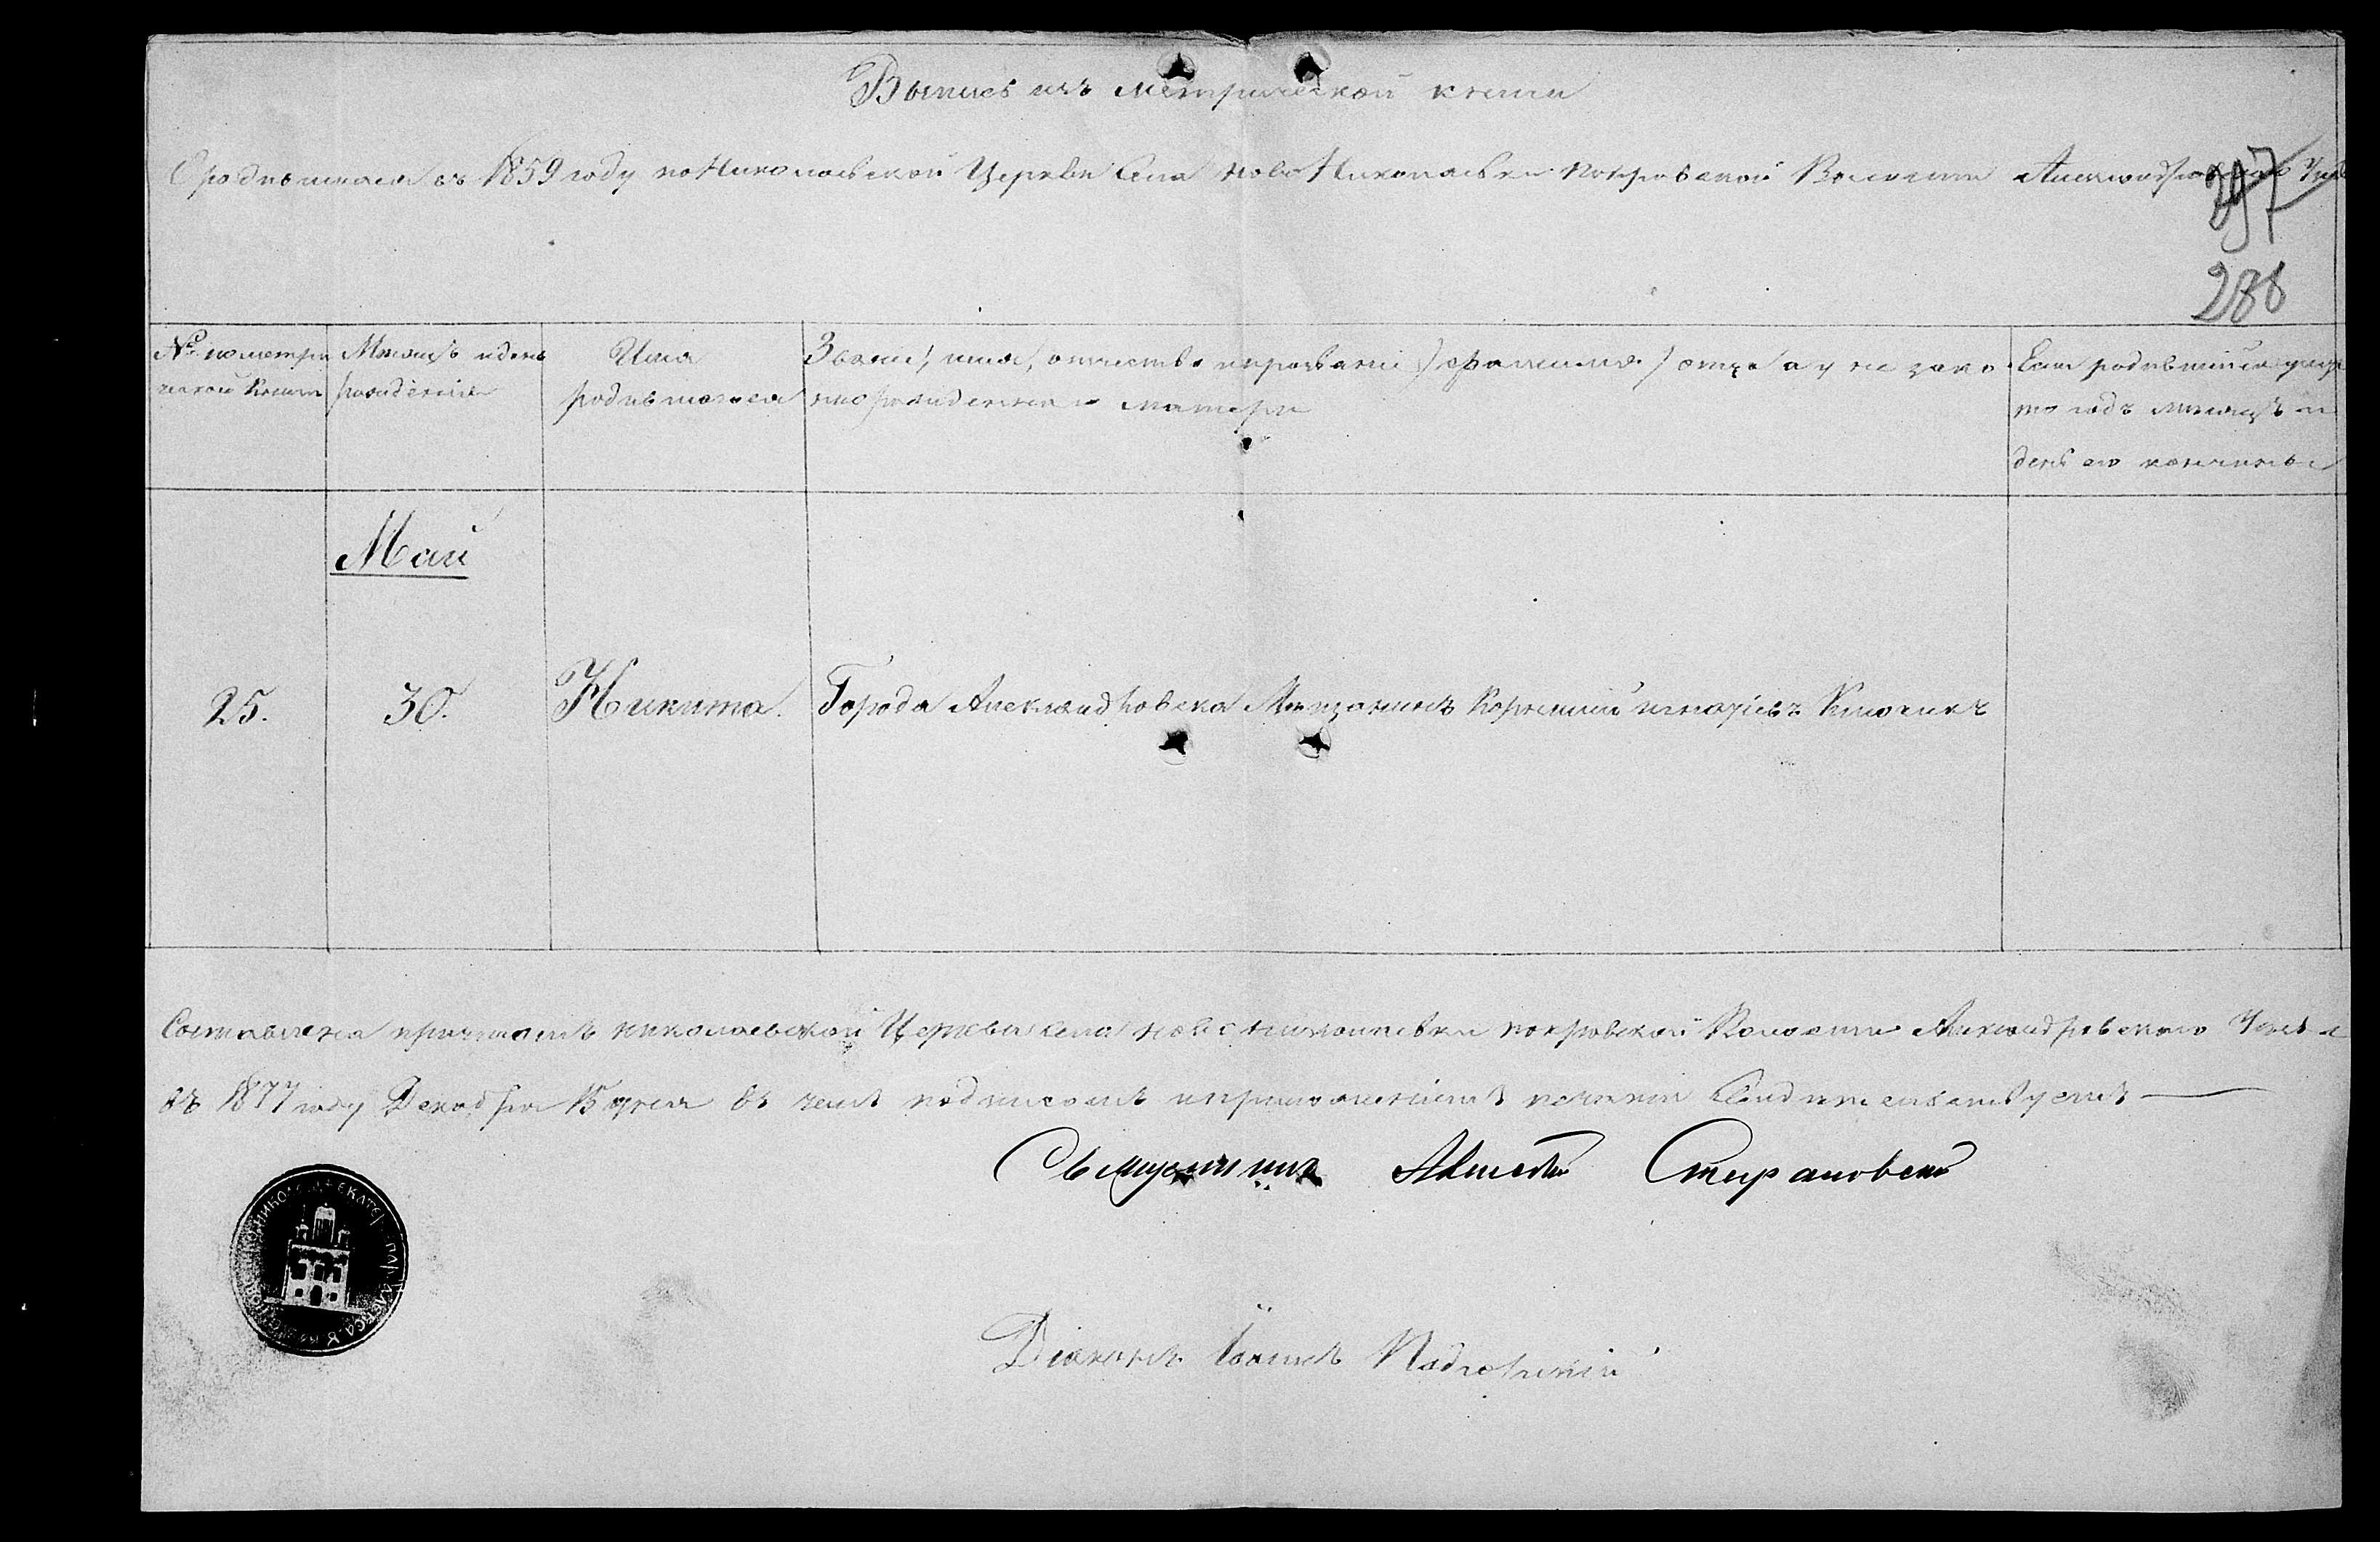 Выпись изъ метрической книги
О родившемся въ 1859 году по Николаевской Церкви Села Ново Николаевки Покровской Волости Александровскаго Уѣзд
297
288
№ по метри
ческой Книги
Мѣсяцъ и день
рожденія
Имя
родившагося
Званіе, имя, отчество и прозваніе (фамилія) отца а у не зако
ннорожденнаго матери
Если родившійся умер
то годъ мѣсяцъ и
день его кончины
Май
25.
30.
Никита.
Города Александровска Мѣщанинъ Корнилий Игнатіевъ
Составлена причтомъ Николаевской Церкви села Ново Николаевки Покровской Волости Александровскаго Уѣзда
въ 1877 году Декабря 15 дня въ чемъ подписомъ и приложеніемъ печати Свидѣтельствуемъ
Священникъ Алексѣй
Діаконъ Іоаннъ